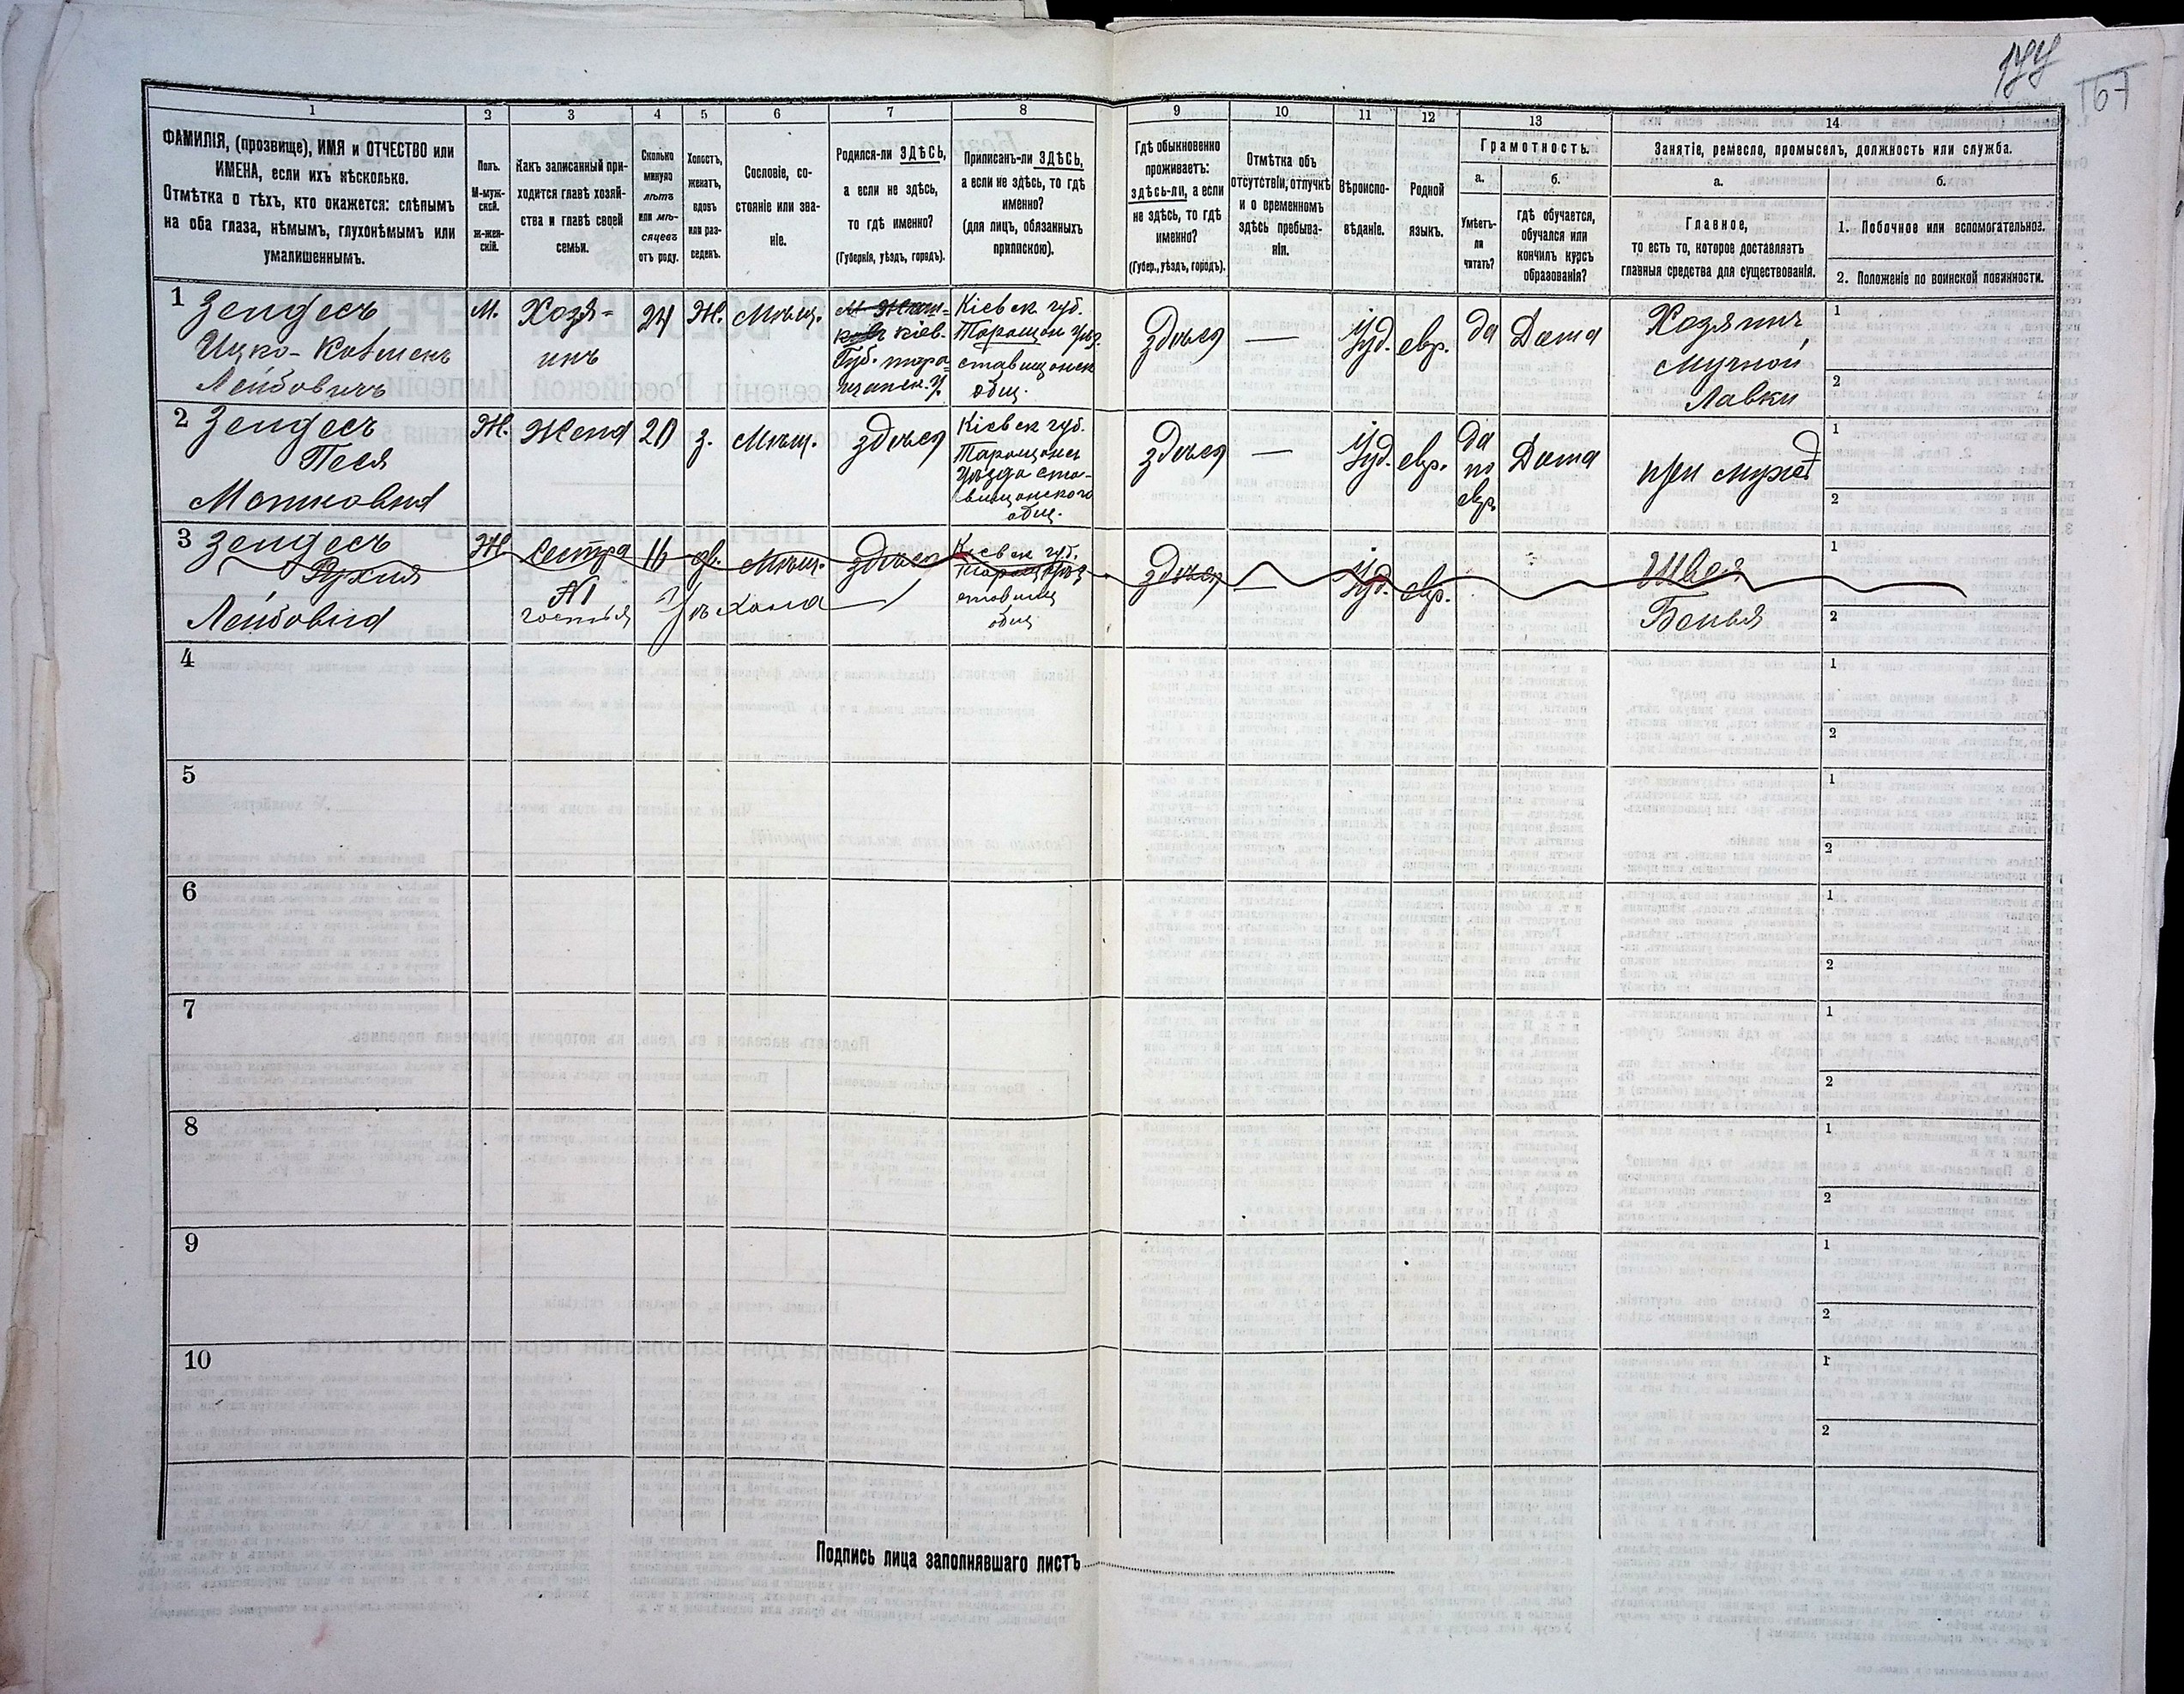 167
1
2
3
4
5
6
7
8
9
10
11
12
13
14
ФАМИЛІЯ, (прозвище), ИМЯ и ОТЧЕСТВО или
ИМЕНА, если ихъ нѣсколько.
Отмѣтка о тѣхъ, кто окажется: слѣпымъ
на оба глаза, нѣмымъ, глухонѣмымъ или
умалишеннымъ.
Полъ.
М-муж-
ской.
ж-жен-
скій.
Какъ записанный при-
ходится главѣ хозяй-
ства и главѣ своей
семьи.
Сколько
минуло
лѣтъ
или мѣ-
сяцевъ
отъ роду.
Холостъ,
женатъ,
вдовъ
или раз-
веденъ.
Сословіе, со-
стояніе или зва-
ніе.
Родился-ли ЗДѢСЬ,
а если не здѣсь,
то гдѣ именно?
(Губернія, уѣздъ, городъ).
Приписанъ-ли ЗДѢСЬ,
а если не здѣсь, то гдѣ
именно?
(для лицъ, обязанныхъ
припискою).
Гдѣ обыкновенно
проживаетъ:
здѣсь-ли, а если
не здѣсь, то гдѣ
именно?
(Губер., уѣздъ, городъ).
Отмѣтка объ
отсутствіи, отлучкѣ
и о временномъ
здѣсь пребыва-
ніи.
Вѣроиспо-
вѣданіе.
Родной
языкъ.
Грамотность.
а.
Умѣетъ-
ли
читать?
б.
гдѣ обучается,
обучался или
кончилъ курсъ
образованія?
Занятіе, ремесло, промыселъ, должность или служба.
а.
Главное,
то есть то, которое доставляетъ
главныя средства для существованія.
б.
1. Побочное или вспомогательное.
2. Положеніе по воинской повинности.
1
Зендесъ
Ицко-
Лейбовичъ
М.
Хозя-
инъ
24
Ж.
Мѣщ.
кіев.
Губ. тара-
щанск. у.
Кіевск. губ.
Таращан. уѣз.
ставищанск
общ.
Здѣсь
—
Іуд.
евр.
да
Дома
Хозяинъ
мучной
Лавки
1
2
2
Зендесъ
Песя
Мошковна
Ж.
Жена
20
з.
Мѣщ.
здѣсь
Кіевск губ.
Таращанс
Уѣзда ста-
вищанского
общ.
Здѣсь
—
Іуд.
евр.
да
по
евр.
Дома
при мужѣ
1
2
3
Зендесъ
Рухля
Лейбовна
Ж.
Сестра
№1
гостья
16
дѣ.
Мѣщ.
здѣсь
Кіевск губ.
Таращ уѣз
ставищ
общ
здѣсь
—
Іуд.
евр.
Швея
Бѣлья
1
2
4
1
2
5
1
2
6
1
2
7
1
2
8
1
2
9
1
2
10
1
2
Подпись лица заполнявшаго листъ